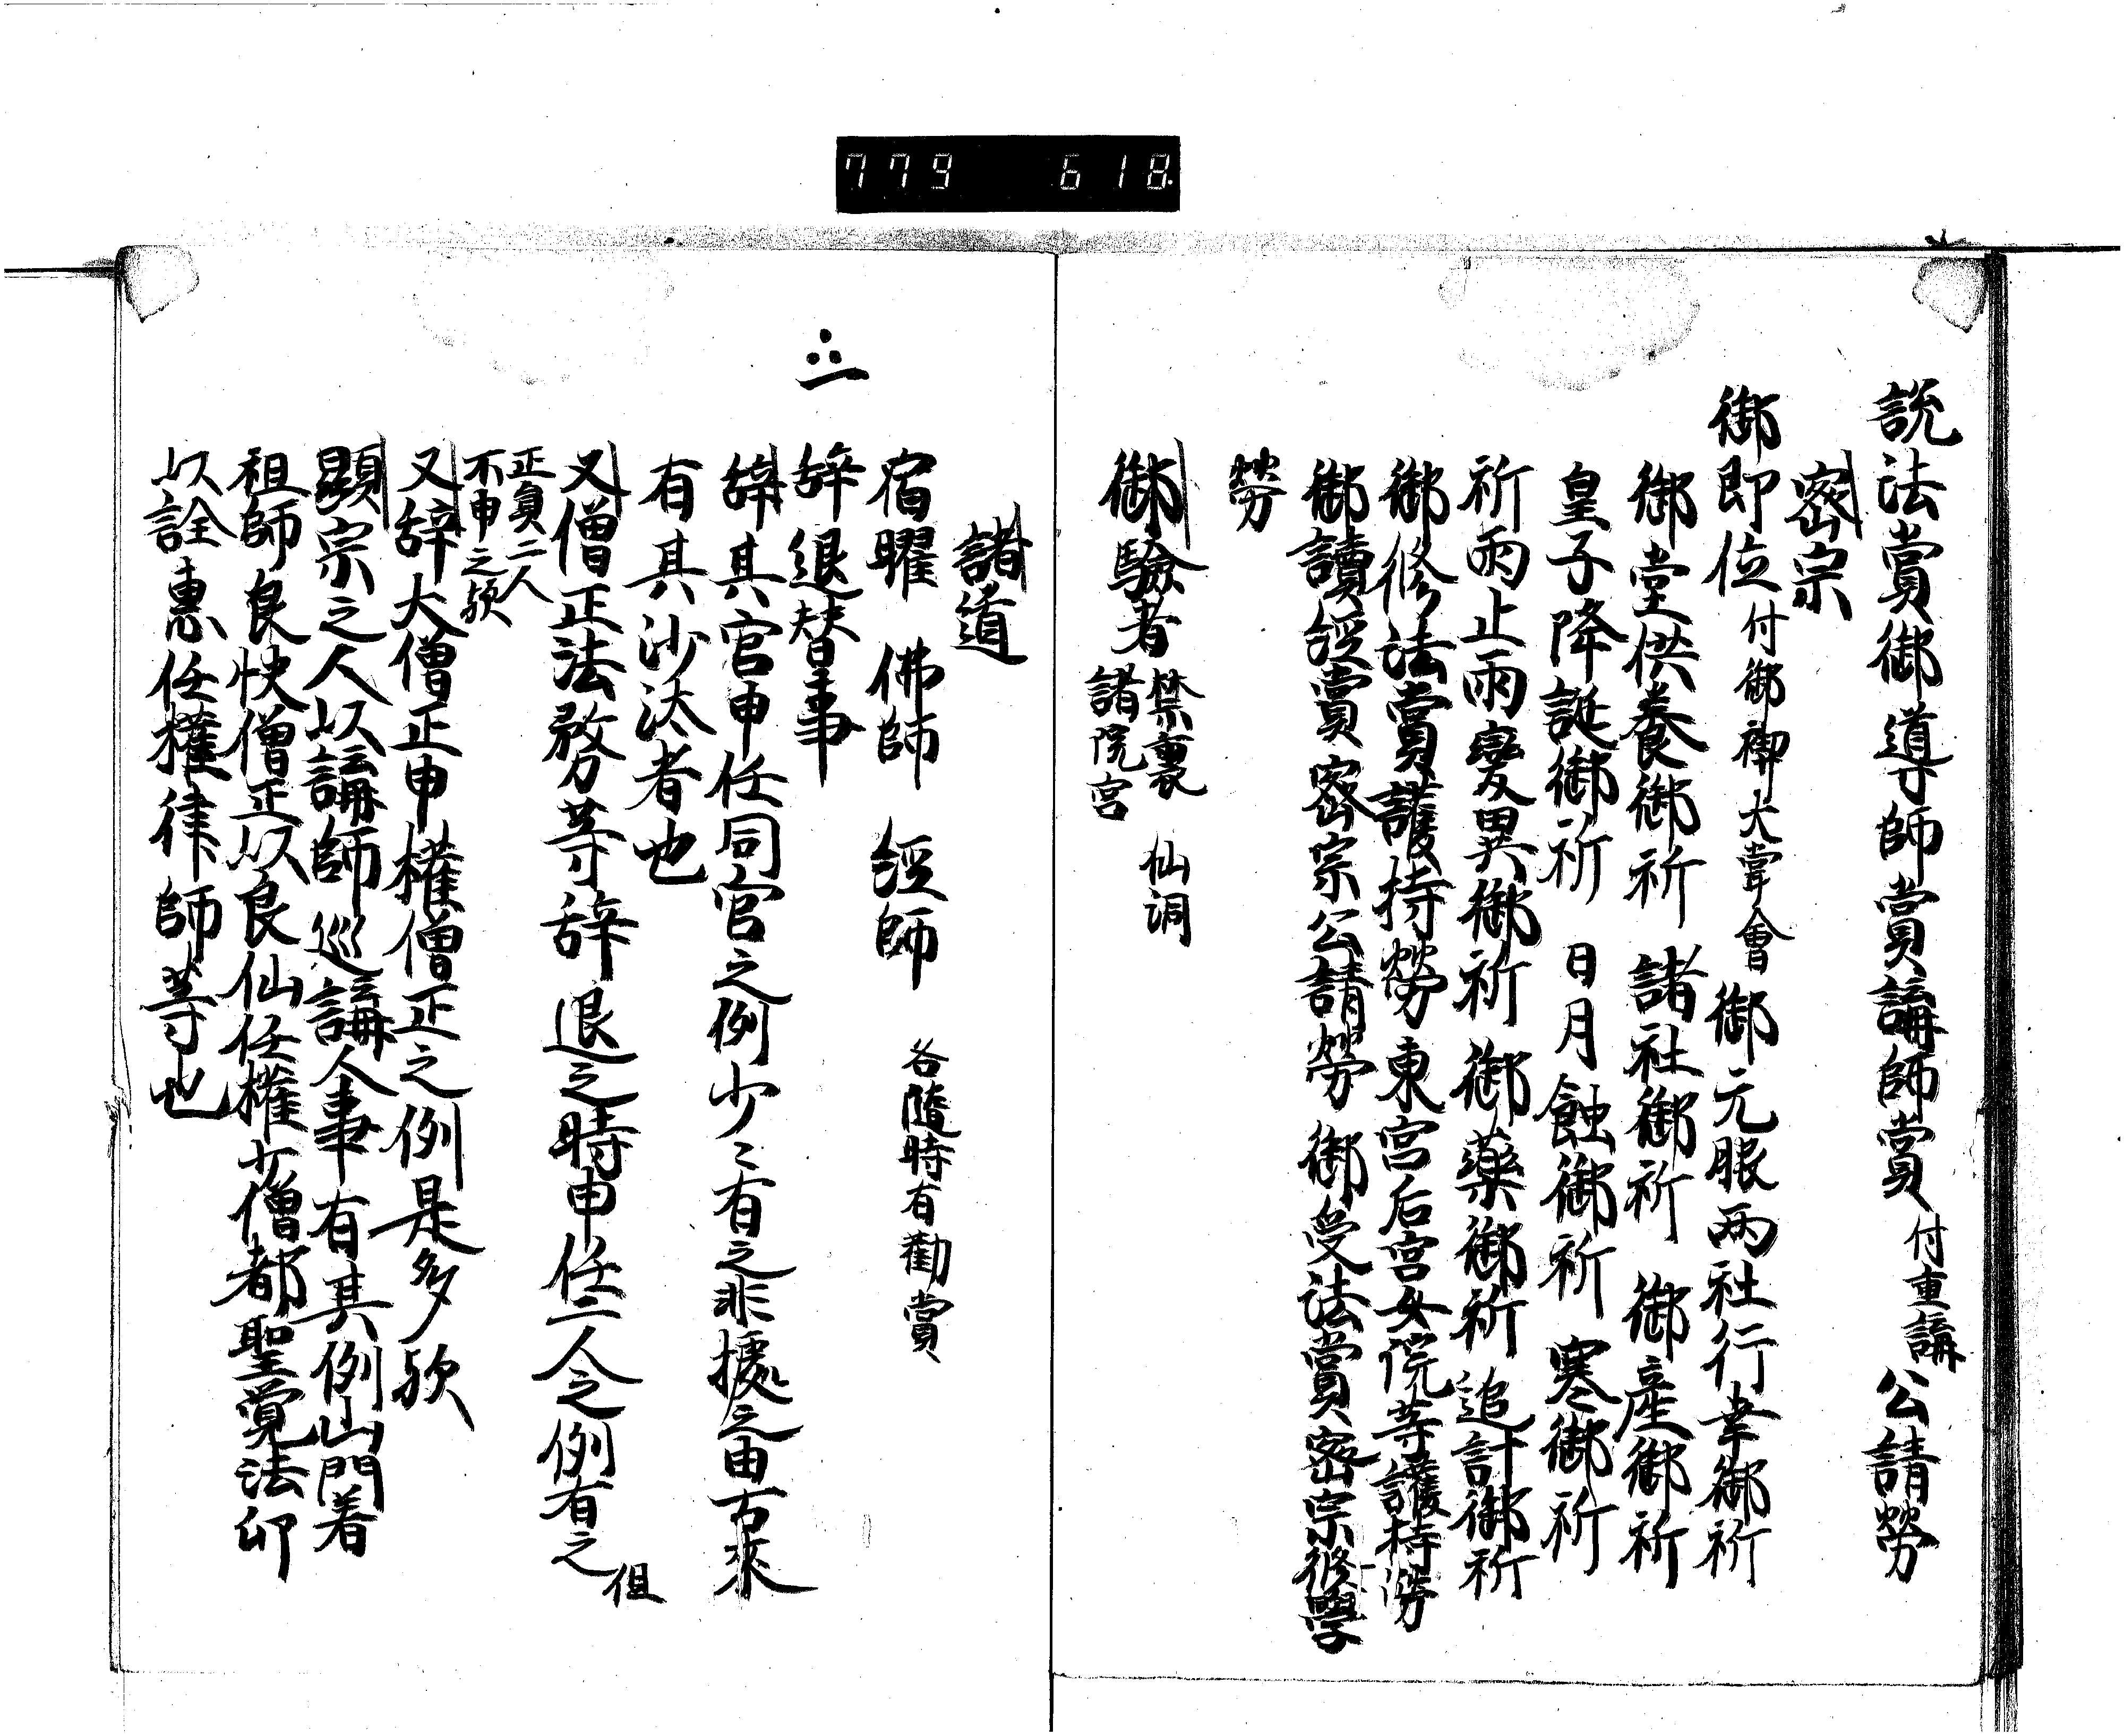 779 618
説法賞御導師賞講師賞付重講 公請労
密宗
御即位付御禊大嘗會 御元服両社行幸御祈
御堂供養御祈 諸社御祈 御産御祈
皇子降誕御祈 日月蝕御祈 寒御祈
祈雨止雨変異御祈御薬御祈追討御祈
御修法賞護持労東宮后宮女院等護持労
御讀経賞密宗公請労御受法賞密宗修學
労
御驗者禁裏 仙洞
諸院宮
諸道
宿曜 佛師 経師 各隨時有勸賞
一 辞退替事
辞其官申任同官之例少々有之非據之由古来
有其沙汰者也
又僧正法務等辞退之時申任二人之例有之但
正員二人
不申之歟
又辞大僧正申権僧正之例是多歟
顕宗之人以講師巡講人事有其例山門者
祖師良快僧正以良仙任権少僧都聖覚法印
以詮惠任権律師等也